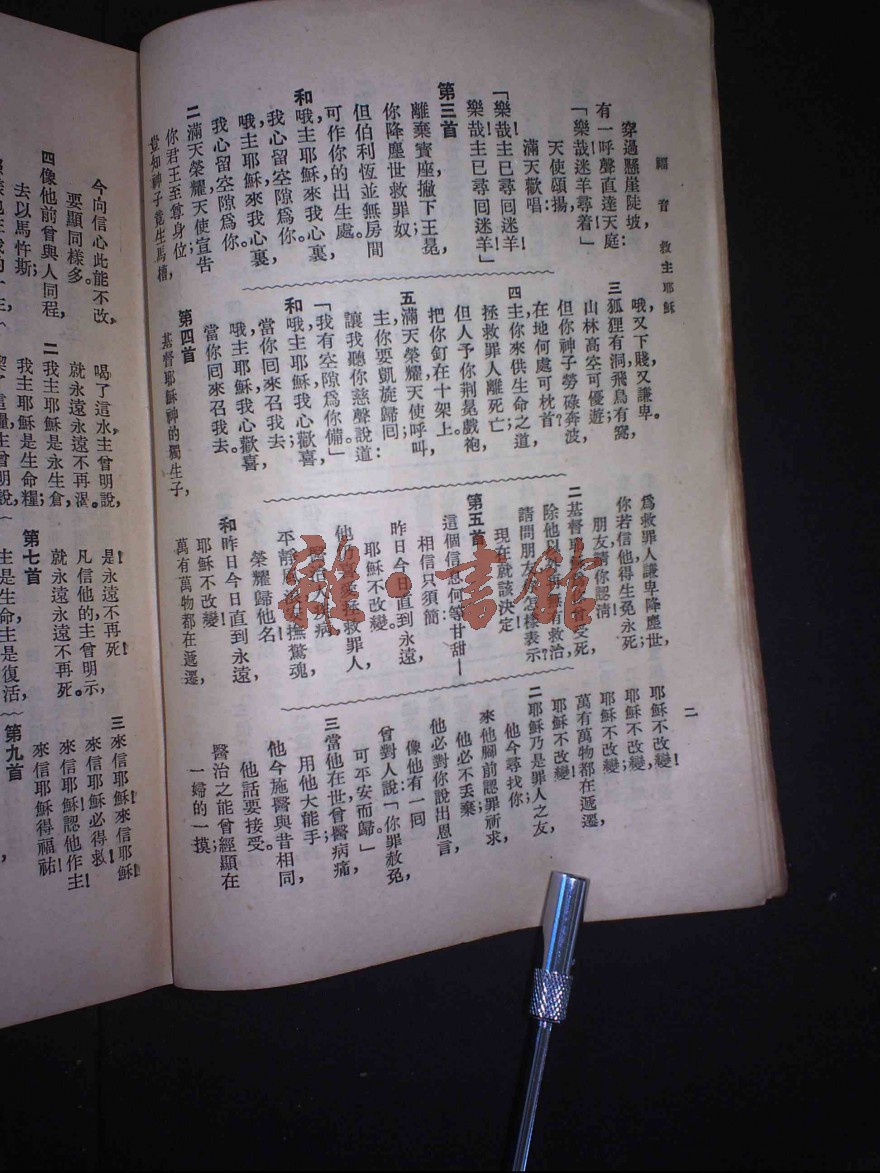 福音 救主耶穌
二
穿過懸崖陡坡：
有一呼聲直達天庭
「樂哉！迷羊尋着」
天使頌揚，
滿天歡唱：
「樂哉！主已尋回迷羊！
樂哉！主已尋回迷羊」
第三首
離棄寶座撇下王冕，
你降塵世救罪奴
但伯利恆並無房間
可作你的出生處。
和 哦，主耶穌來我心裏
我心留空隙爲你。
哦，主耶穌，來我心裏
我心留空隙爲你。
二 滿天榮耀天使宣告
你君王至尊身位，
豈知神子竟生馬槽，
哦，又下賤，又謙卑。
三 狐狸有洞，飛鳥有窩，
山林高空可優遊；
但你神子勞碌奔波，
在地何處可枕首？
四 主，你來供生命之道，
拯救罪人離死亡
但人予你荆冕戲袍，
把你釘在十架上。
五 滿天榮耀，天使呼叫，
主，你要凱旋歸回；
讓我聽你慈聲說道：
「我有空隙爲你備。」
和 哦，主耶穌，我心歡喜，
當你回來召我去；
哦，主耶穌，我心歡喜，
當你回來召我去。
第四首
基督耶穌神的獨生子，
爲救罪人謙卑降塵世，
你若信他得生免永死；
朋友，請你認清
二 基督耶穌曾受死，
除他以外再無有救治，
請問朋友，你怎樣表示？
現在就該決定
第五首
這個信息何等甘甜—
相信只須簡：
昨日今日直到永遠，
耶穌不改變。
他仍喜愛拯救罪人，
醫治人疾病，
平靜風波，安撫驚魂，
榮耀歸他名
和 昨日今日直到永遠，
耶穌不改變
萬有萬物都在遞遷，
耶穌不改變！
耶穌不改變，
耶穌不改變；
萬有萬物都在遞遷，
耶穌不改變
二 耶穌乃是罪人之友，
他今尋找你；
來他腳前認罪祈求，
他必不丟棄
他必對你說出恩言，
像他有一回
曾對人說：「你罪赦免，
可平安而歸。」
三 當他在世曾醫病痛，
用他大能手；
他今施醫與昔相同，
他話要接受。
醫治之能曾經顯在
一婦的一摸，
今向信心此能不改，
要顯同樣多。
四 像他前曾與人同程，
去以馬忤斯；
喝了這水，主曾明說，
就永遠永遠不再渴。
二 我主耶穌是永生倉，
我主耶穌是生命糧；
是！永遠不再死！
凡信他的，主曾明示，
就永遠永遠不再死。
第七首
主是生命，主是復活，
三 來信耶穌，來信耶穌！
來信耶穌必得救！
來信耶穌認他作主！
來信耶穌得福祐！
第九首
雜·書館